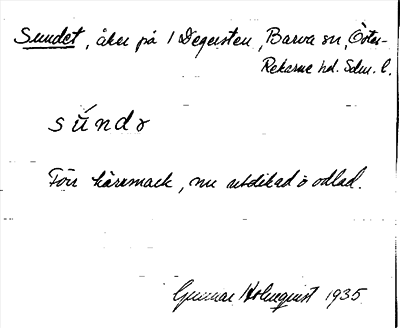 Sundet, åker på 1 Degersten, Barva sn, Öster-
Rekarne hd. Sdm. l.
súndə
Förr kärrmark, nu utdikad o odlad.
Gunnar Holmquist 1935